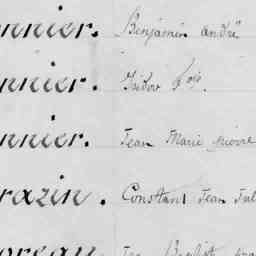 nnier. Benjamin andré
nnier. Isidor fois.
nnier. Jean Marie pierre
razin. Constant Jean Jul
oreau. Jean Baptist